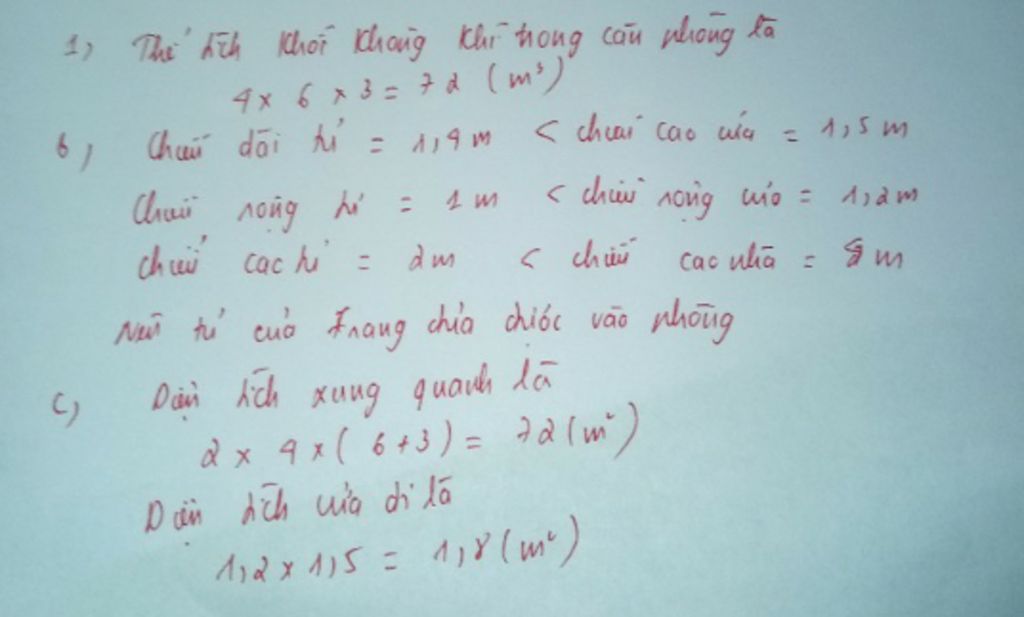 1) Thể tích khối không khí trong căn phòng là
4 x 6 x 3 = 72 (m³)
b) Chiều dài tủ = 1,4m < chiều cao cửa = 1,5 m
Chiều rộng tủ = 1 m < chiều rộng cửa = 1,2m
Chiều cao tủ = 2m < chiều cao nhà = m
Nên tủ của Trang chứa được vào phòng
c) Diện tích xung quanh là
2 x 4 x ( 6+3) = 72 (m²)
Diện tích cửa đi là
1,2 x 1,5 = 1,8 (m²)